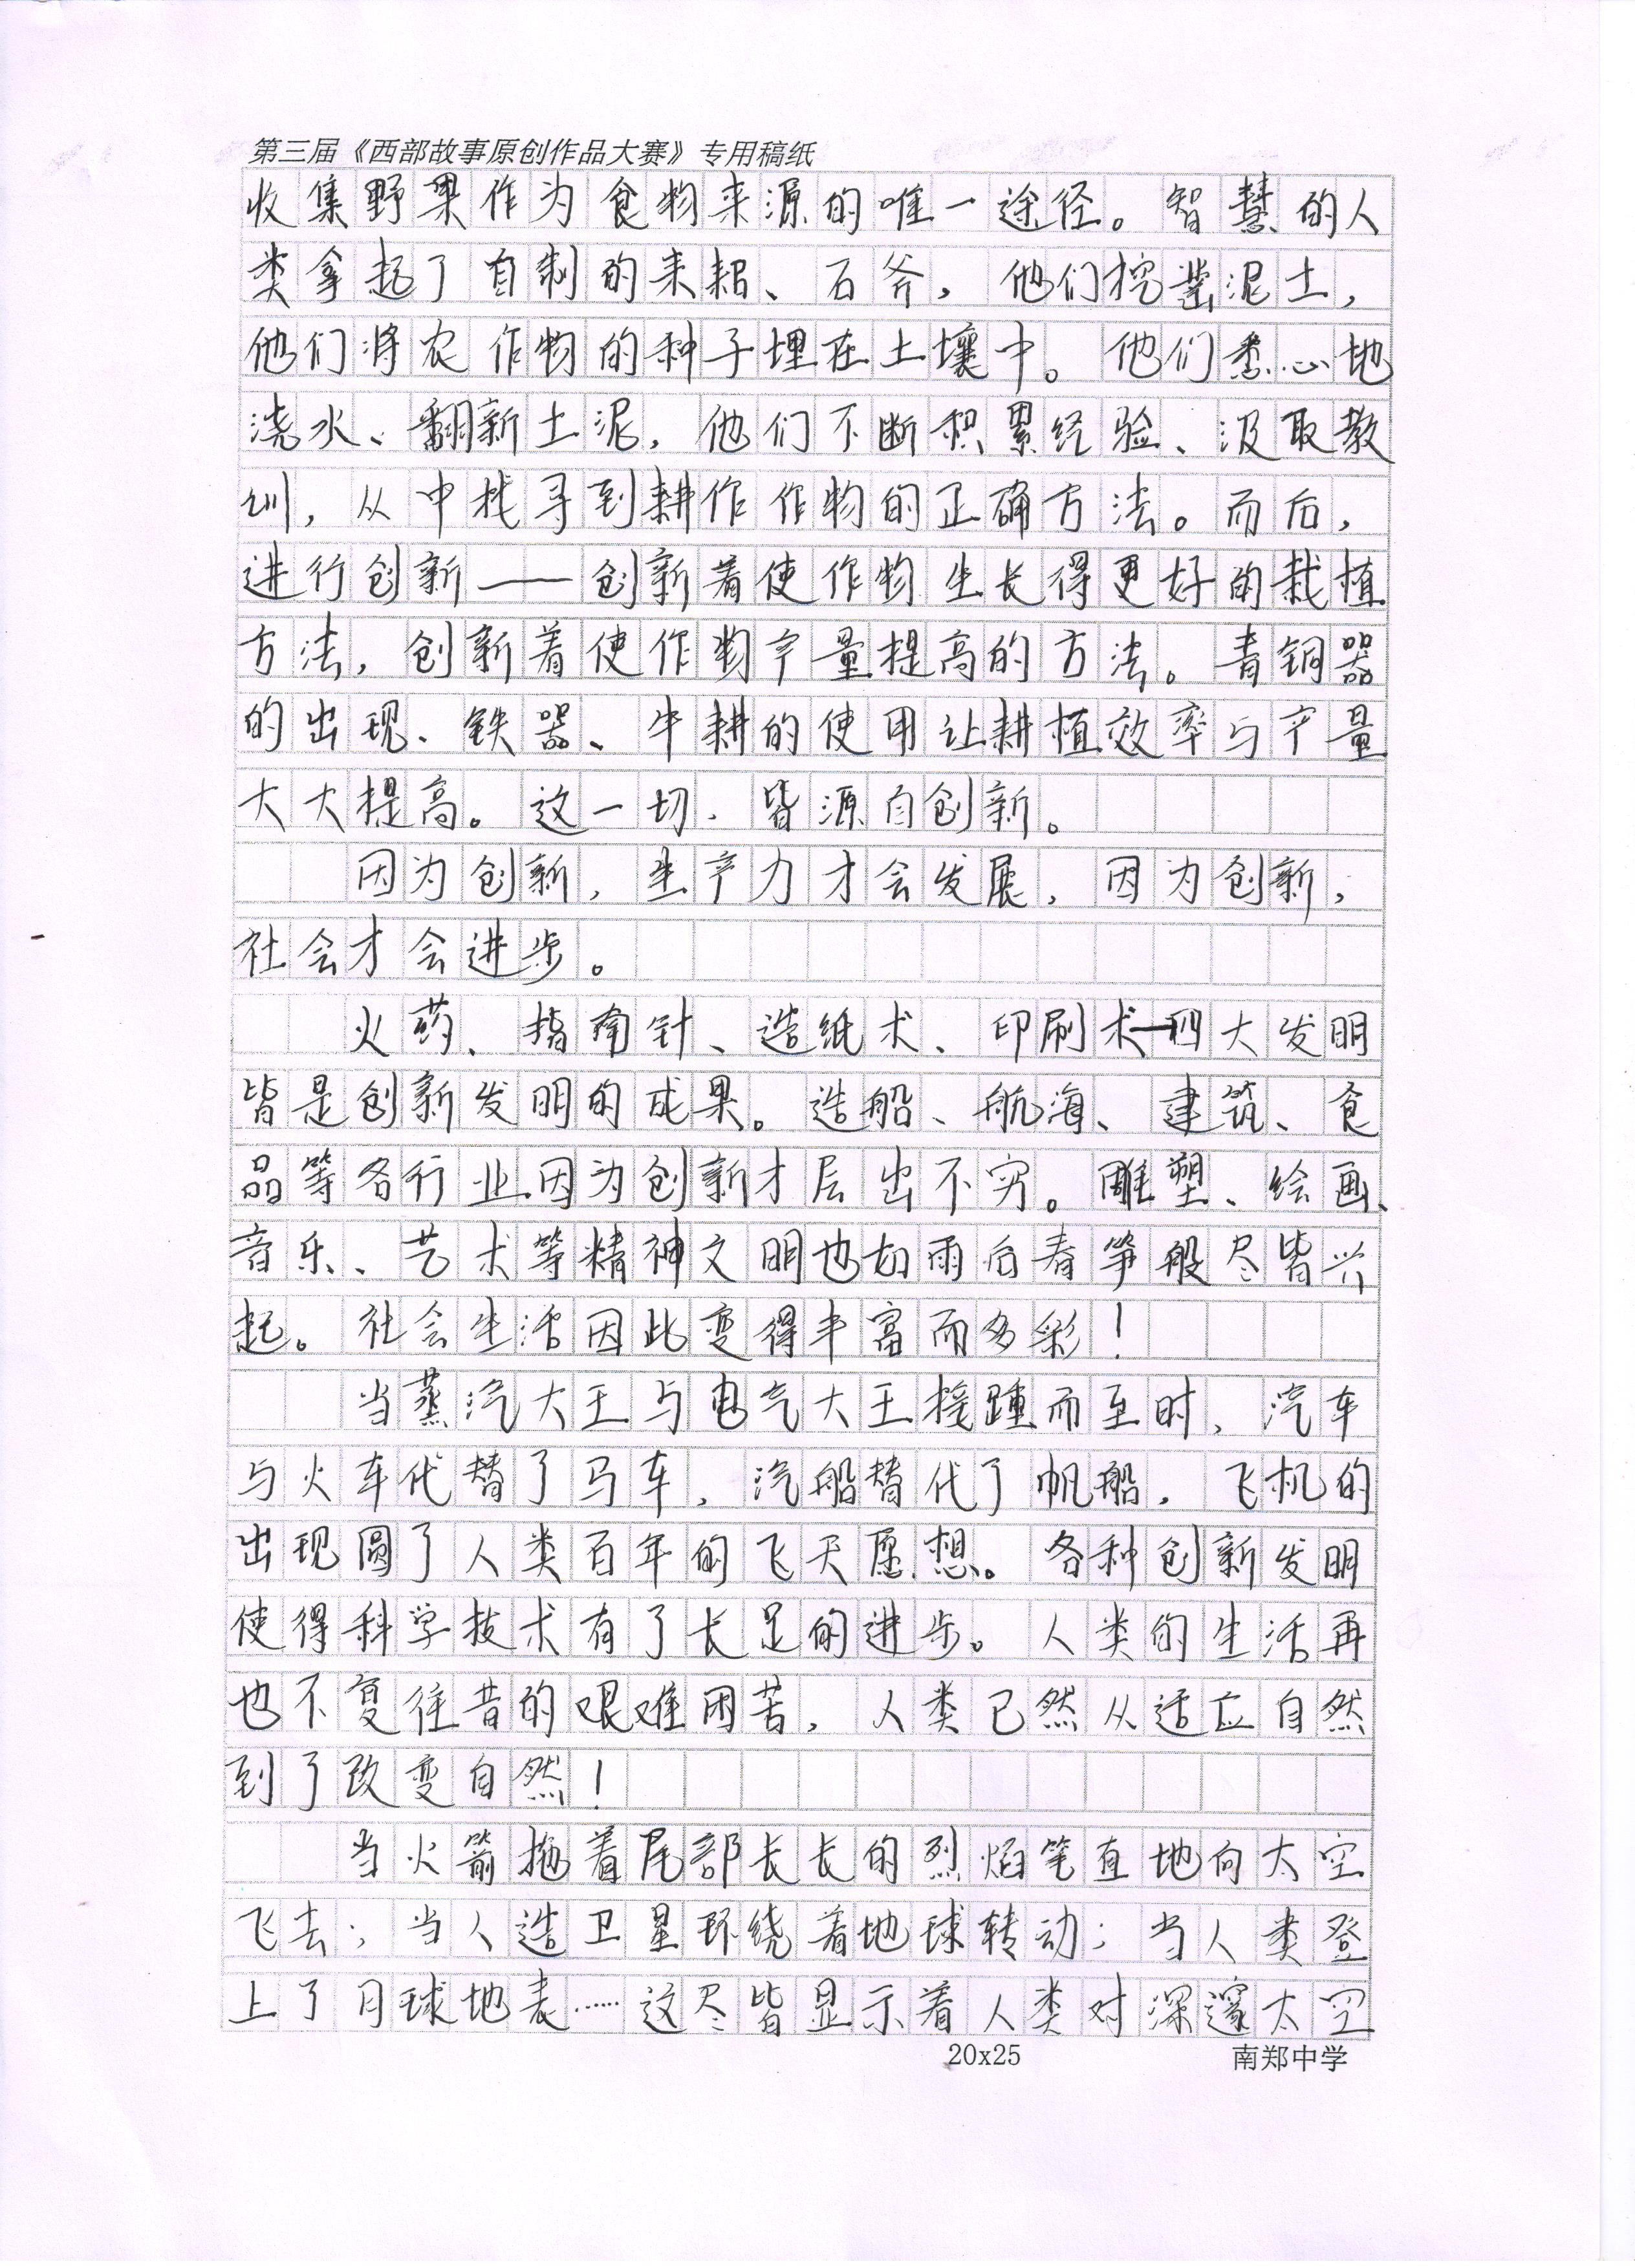 第三届《西部故事原创作品大赛》专用稿纸
收集野果作为食物来源的唯一途径。智慧的人
类拿起了自制的耒耜、石斧，他们挖凿泥土，
他们将农作物的种子埋在土壤中。他们悉心地
浇水、翻新土泥，他们不断积累经验、汲取教
训，从中找寻到耕作作物的正确方法。而后，
进行创新——创新着使作物生长得更好的栽植
方法，创新着使作物产量提高的方法。青铜器
的出现、铁器、牛耕的使用让耕植效率与产量
大大提高。这一切，皆源自创新。
因为创新，生产力才会发展，因为创新，
社会才会进步。
火药、指南针、造纸术、印刷术—四大发明
皆是创新发明的成果。造船、航海、建筑、食
品等各行业因为创新才层出不穷。雕塑、绘画、
音乐、艺术等精神文明也如雨后春笋般尽皆兴
起。社会生活因此变得丰富而多彩！
当蒸汽大王与电气大王接踵而至时，汽车
与火车代替了马车，汽船替代了帆船，飞机的
出现圆了人类百年的飞天愿想。各种创新发明
使得科学技术有了长足的进步。人类的生活再
也不复往昔的艰难困苦，人类已然从适应自然
到了改变自然！
当火箭拖着尾部长长的烈焰笔直地向太空
飞去；当人造卫星环绕着地球转动；当人类登
上了月球地表……这尽皆显示着人类对深邃太空
20x25 南郑中学